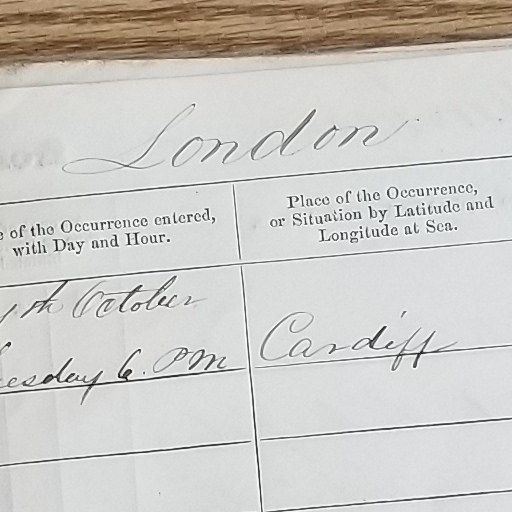 London
of the Occurrence entered,
with Day and Hour.
Place of the Occurrence,
or Situation by Latitude and
Longitude at Sea.
th October
esday 6. PM
Cardiff